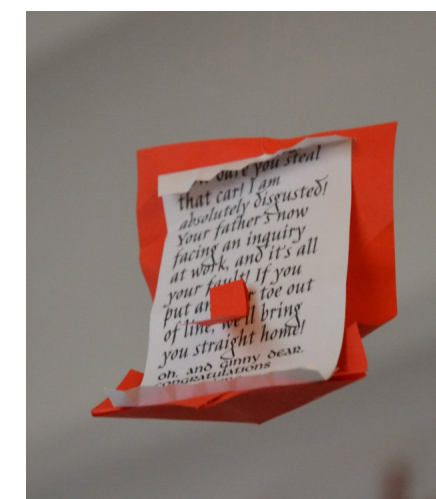 dare you steal
that car! I am
absolutely disgusted!
Your father's now
facing an inquiry
at work, and it's all
your fault! If you
put toe out
of line, we'll bring
you straight home!
oh, and ginny dear,
congratulations